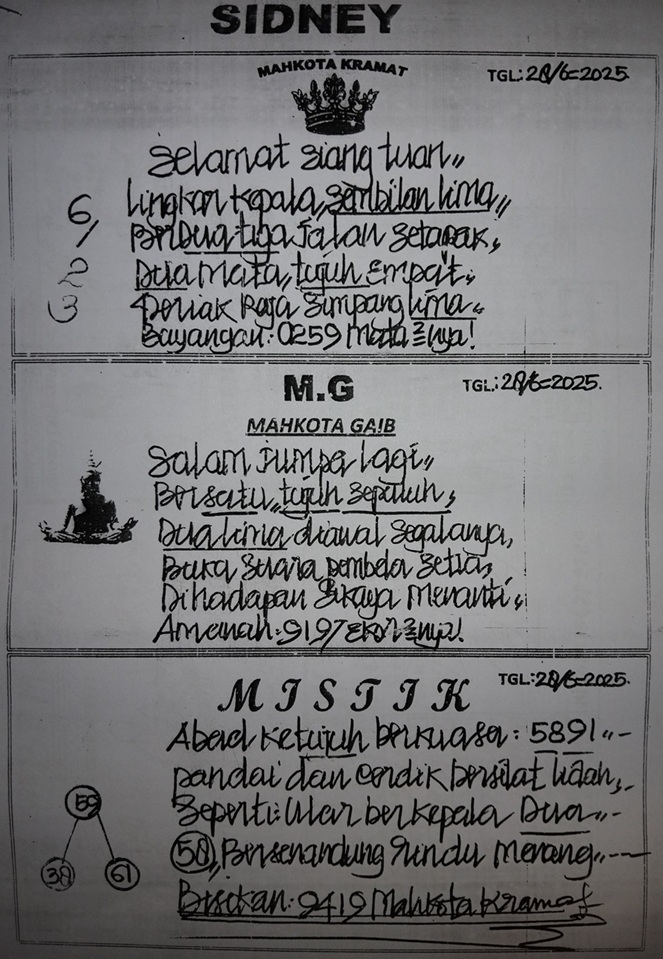 SIDNEY
MAHKOTA KRAMAT
TGL: 28/6=2025.
Selamat siang tuan,,
Lingkar kepala, sembilan lima,,
6, Ber Dua tiga jalan setapak,
2 Dua mata, tujuh empat,
3 Periak Raja simpang lima,,
Bayangan: 0259 mata ²nya!
M.G
TGL: 28/6=2025.
MAHKOTA GAIB
Salam jumpa lagi,,
Bersatu, tujuh sepuluh,
Dua lima diawal segalanya,
Buka suara pembela setia,
Dihadapan sikaya menanti,
Amanah: 9197 ekor ²nya!
MISTIK
TGL: 28/6=2025.
Abad ketujuh berkuasa: 5891,,-
pandai dan cerdik bersilat lidah,-
59
Seperti: Ular berkepala Dua,,-
38 61
58, Bersenandung rindu menang,,-
Bisikan: 9419 Mahkota Kramat